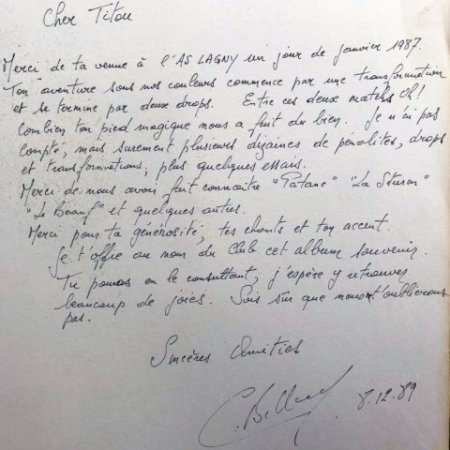 Cher Titou
Merci de ta venue à l'AS LAGNY un jour de janvier 1987.
Ton aventure sous nos couleurs commence par une transformation
et se termine par deux drops. Entre ces deux matchs oh!
combien ton pied magique nous a fait du bien. Je n'ai pas
compté, mais surement plusieurs dizaines de pénalités, drops
et transformations, plus quelques essais.
Merci de nous avoir fait connaitre "Patane" "La
"Le Beauf" et quelques autres.
Merci pour ta générosité, tes chants et ton accent.
Je t'offre au nom du Club cet album souvenir.
Tu pourras en le consultant, j'espère y retrouver
beaucoup de joies. Sois sûr que nous n't'oublierons
pas.
Sincères Amitiés
8.12.89